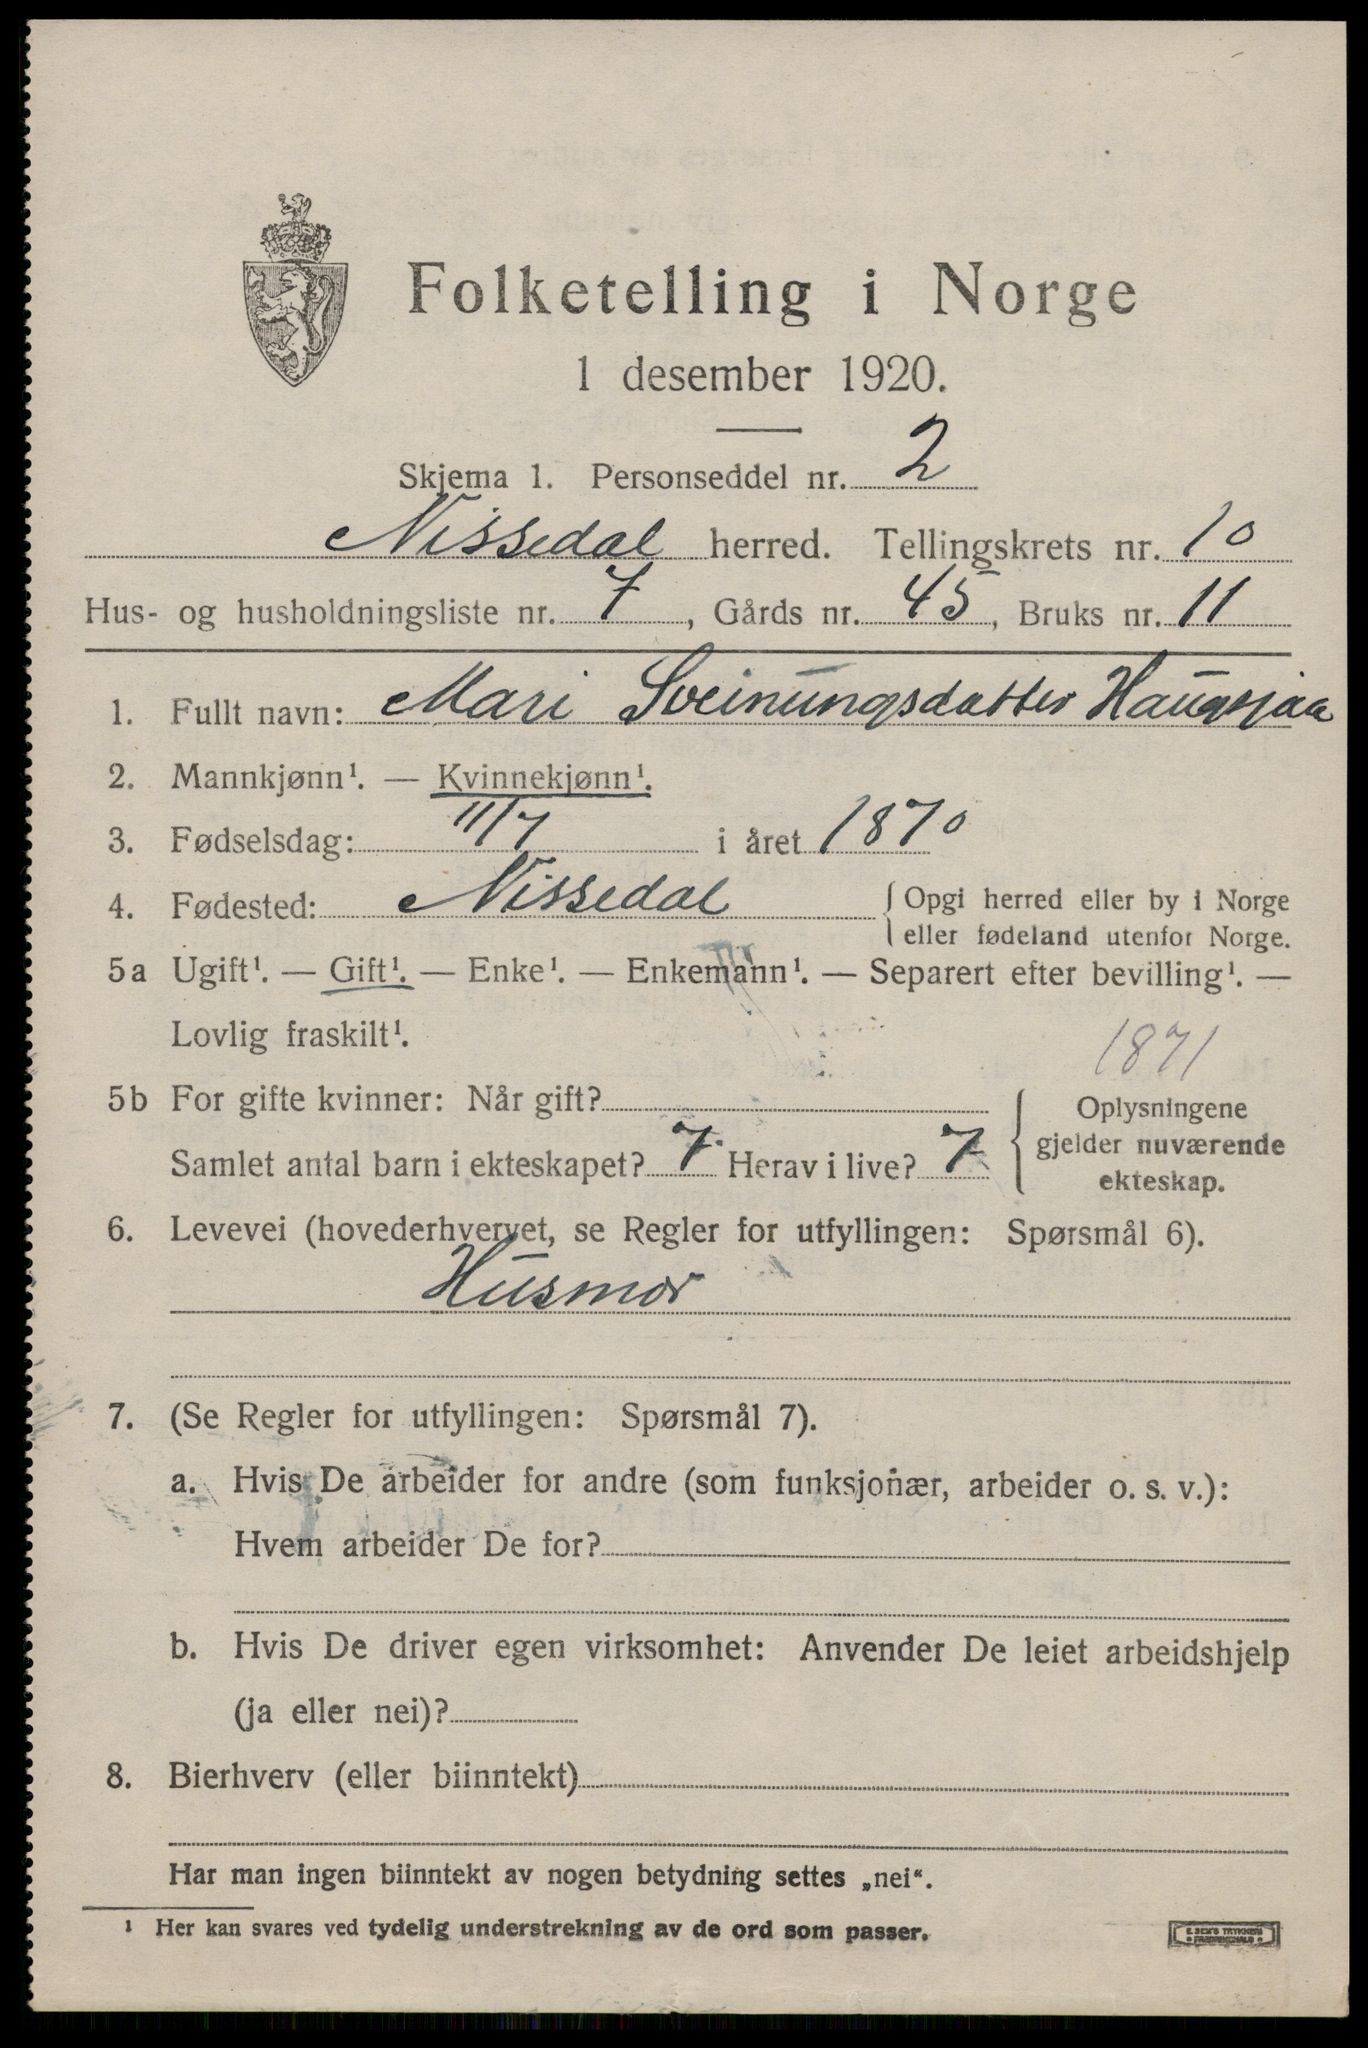 Folketelling i Norge
1 desember 1920.
Skjema 1. Personseddel nr. 2
Nissedal herred. Tellingskrets nr. 10
Hus- og husholdningsliste nr. 7, Gårds nr. 45, Bruks nr. 11
1. Fullt navn: Mari Sveinungsdatter Haugsjaa
2. Mannkjønn¹. — Kvinnekjønn¹.
3. Fødselsdag: 11/7 i året 1870
4. Fødested: Nissedal { Opgi herred eller by i Norge
eller fødeland utenfor Norge.
5a Ugift¹. — Gift¹. — Enke¹. — Enkemann¹. — Separert efter bevilling¹. —
Lovlig fraskilt¹.
1871
5b For gifte kvinner: Når gift?
Samlet antal barn i ekteskapet? 7 Herav i live? 7
Oplysningene
gjelder nuværende
ekteskap.
6. Levevei (hovederhvervet, se Regler for utfyllingen: Spørsmål 6).
Husmor
7. (Se Regler for utfyllingen: Spørsmål 7).
a. Hvis De arbeider for andre (som funksjonær, arbeider o. s. v.):
Hvem arbeider De for?
b. Hvis De driver egen virksomhet: Anvender De leiet arbeidshjelp
(ja eller nei)?
8. Bierhverv (eller biinntekt)
Har man ingen biinntekt av nogen betydning settes „nei“.
¹ Her kan svares ved tydelig understrekning av de ord som passer.